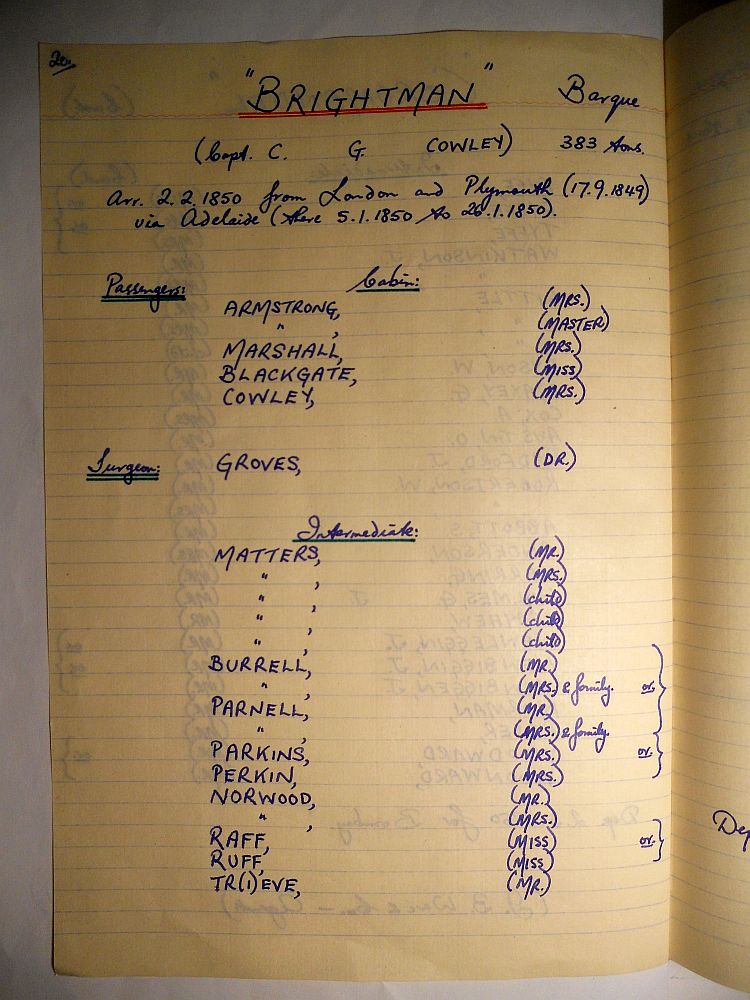 20.
"BRIGHTMAN" Barque
(Capt. C. G. COWLEY) 383 tons.
Arr. 2.2.1850 from London and Plymouth (17.9.1849)
via Adelaide (there 5.1.1850 to 26.1.1850).
Passengers: Cabin:
ARMSTRONG, (MRS.)
" , (MASTER)
MARSHALL, (MRS.)
BLACKGATE, (MISS)
COWLEY, (MRS.)
Surgeon: GROVES, (DR.)
Intermediate:
MATTERS, (MR.)
" , (MRS.)
" , (child)
" , (child)
" , (child)
BURRELL, (MR.)
" , (MRS.) & family. or.
PARNELL, (MR.)
" , (MRS.) & family.
PARKINS, (MRS.) or.
PERKIN, (MRS.)
NORWOOD, (MR.)
" , (MRS.)
RAFF, (MISS) or.
RUFF, (MISS)
TR(I)EVE, (MR.)
Dep